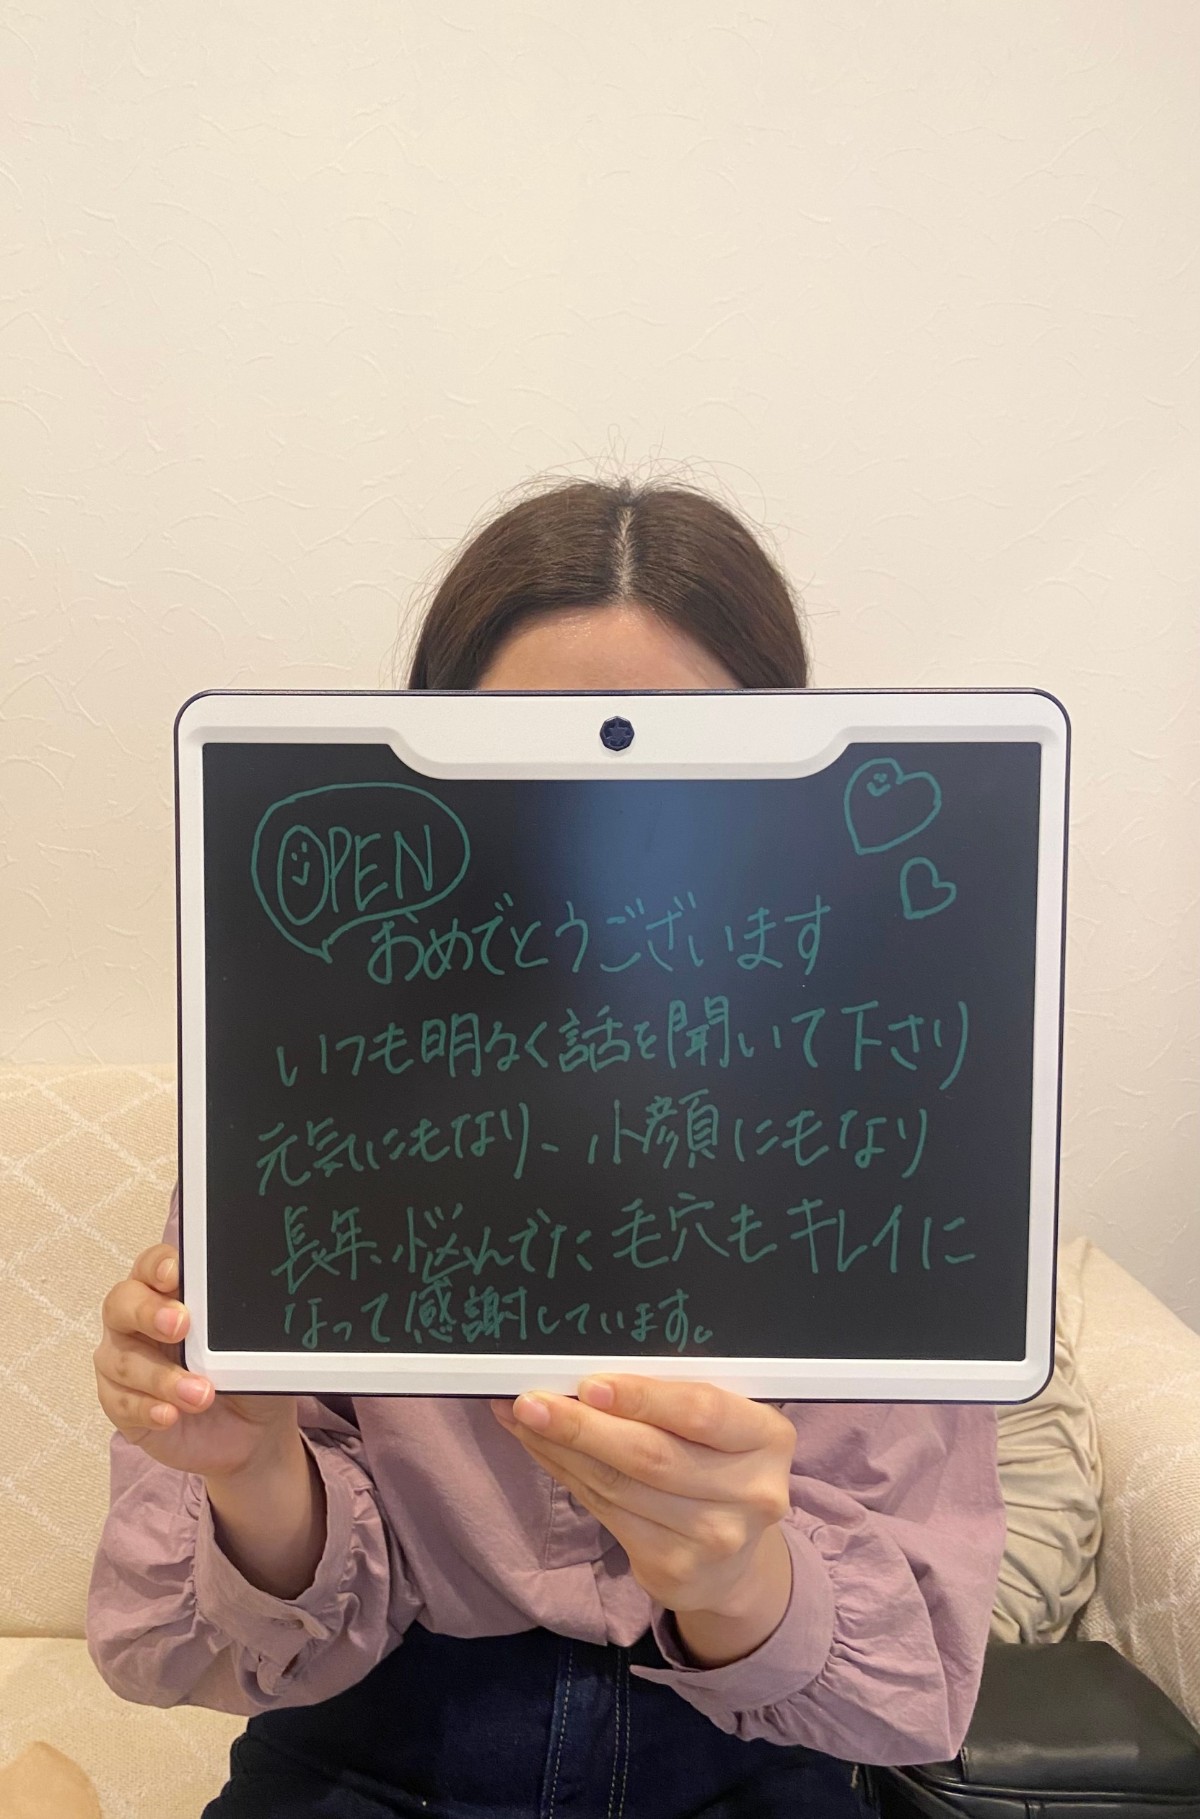 OPEN
おめでとうございます
いつも明るく話を聞いて下さり
元気にもなり、小顔にもなり
長年、悩んでた毛穴もキレイに
なって感謝しています。